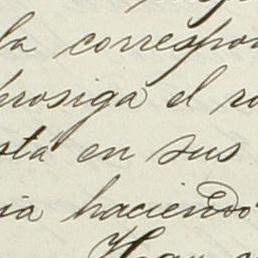 la correspon
prosiga el ro
sta en sus
ia haciendo